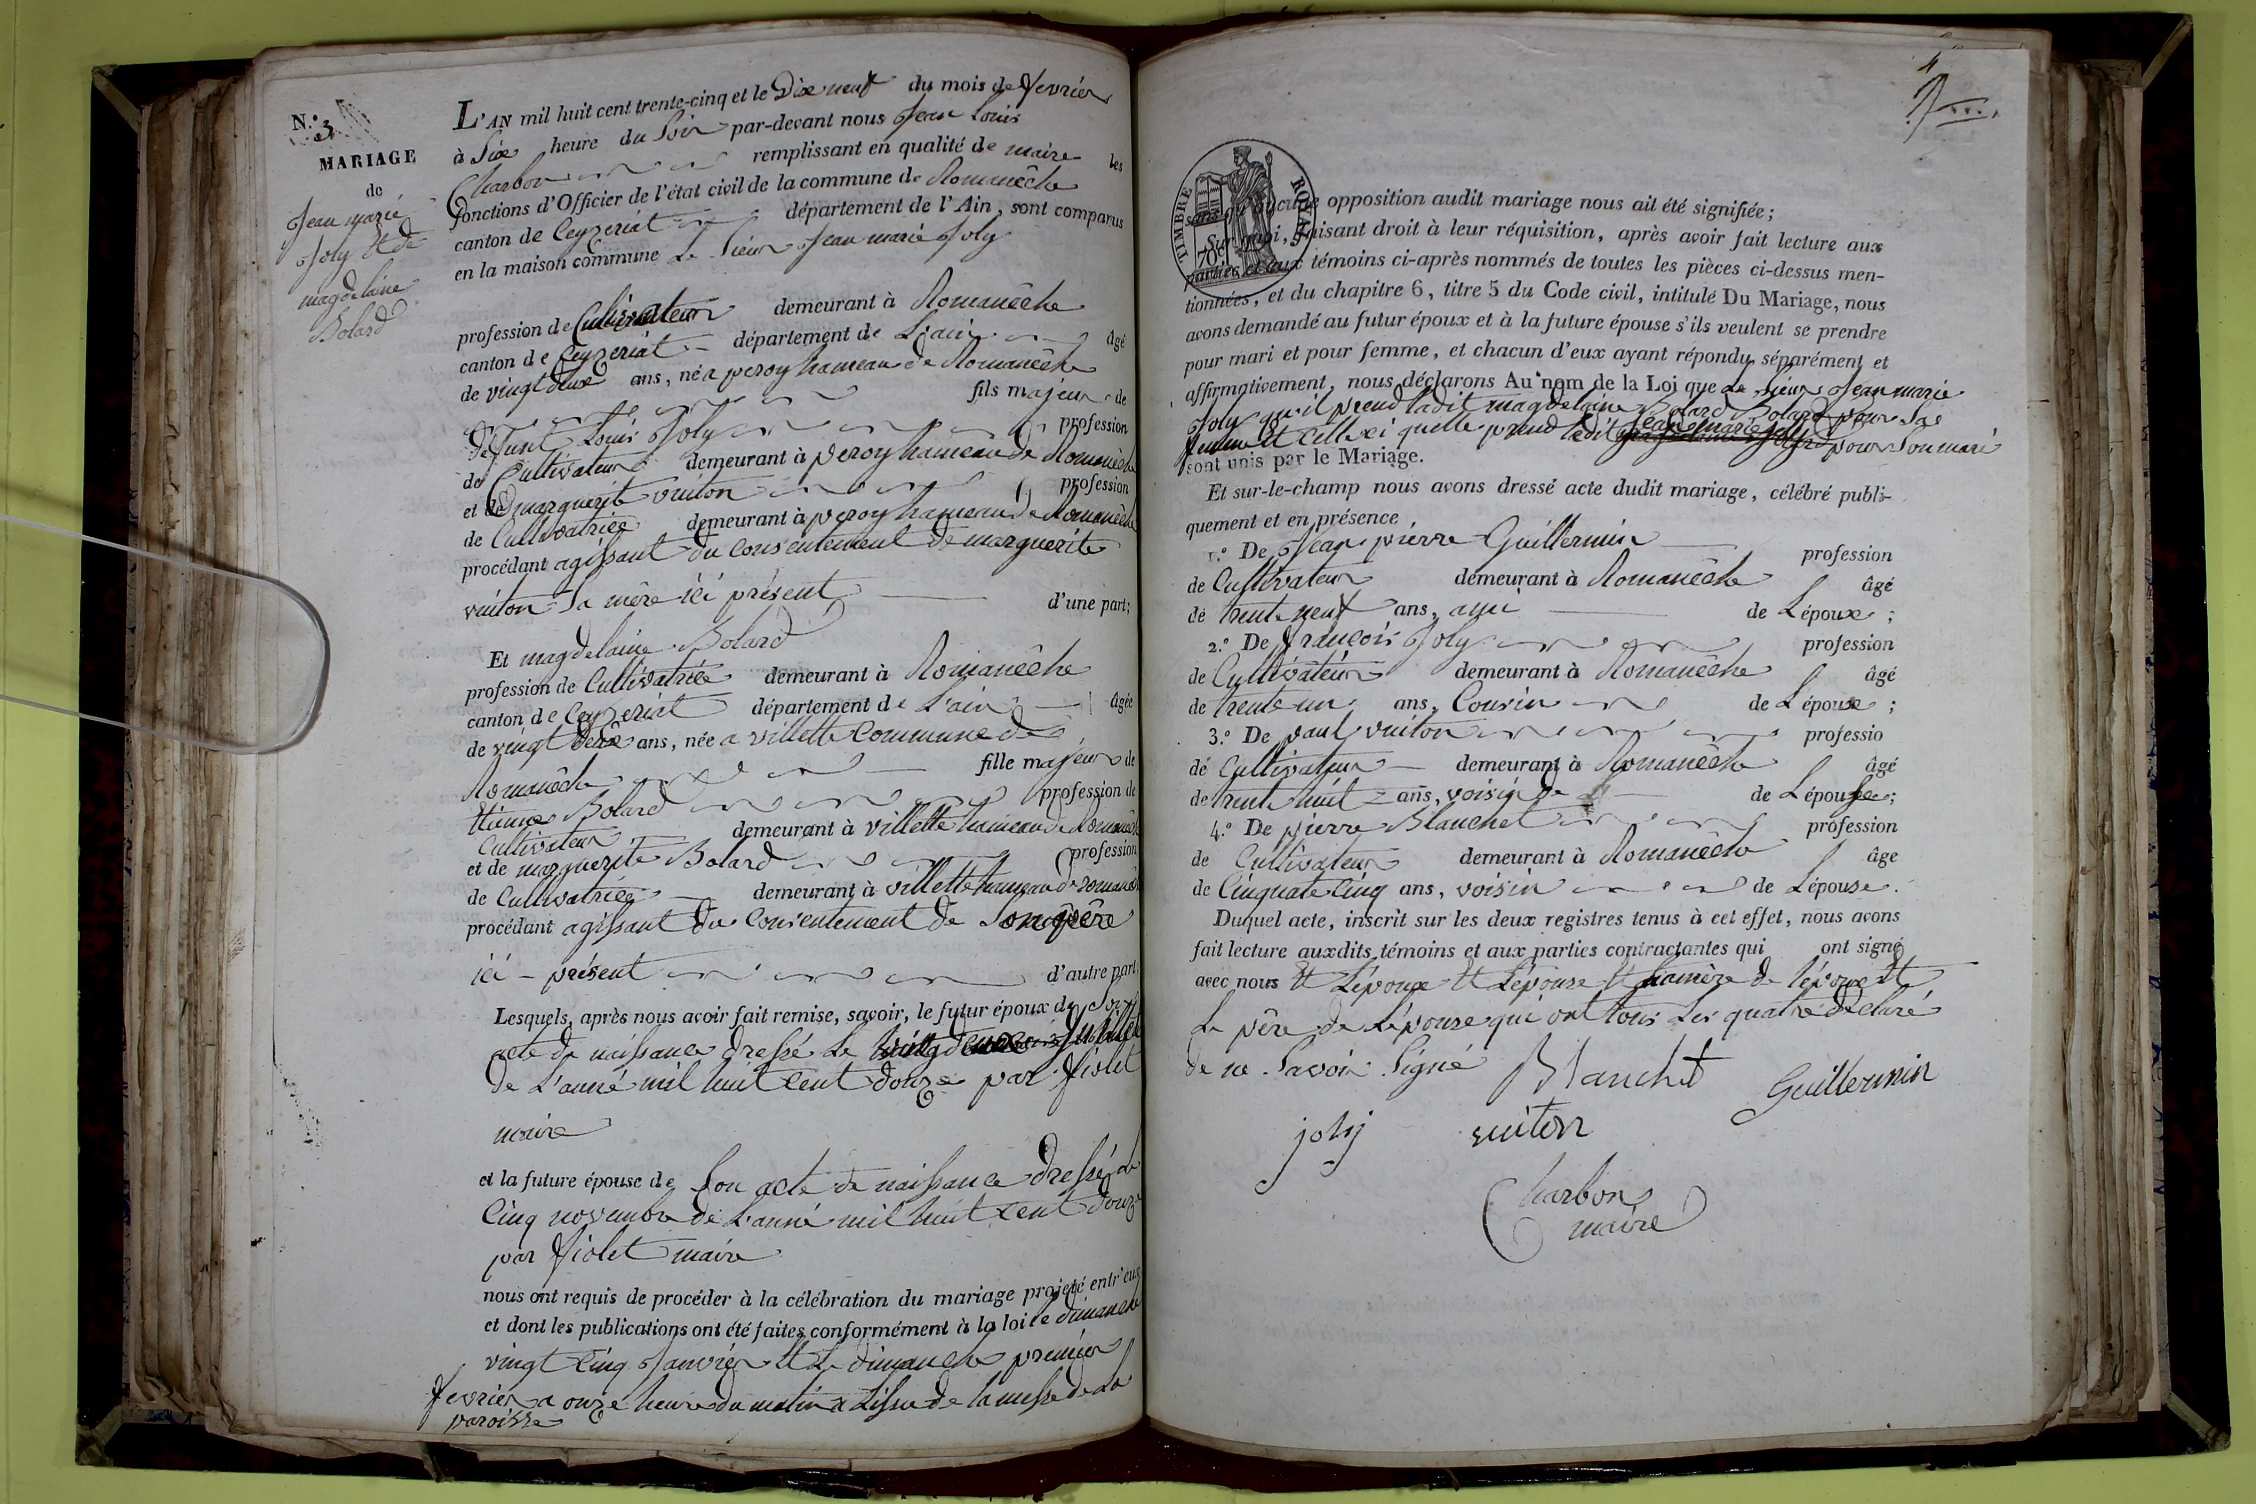 N.° 3
MARIAGE
de
Jean marie
Joly Et de
magdelaine
Bolard
L'AN mil huit cent trente-cinq et le Dix neuf du mois de fevrier
à Six heure du Soir par-devant nous Jean Louis
Charbon remplissant en qualité de maire les
fonctions d'Officier de l'état civil de la commune de Romanêche
canton de Ceyzeriat département de l'Ain, sont comparus
en la maison commune Le Sieur Jean marie Joly
profession de Cultivateur demeurant à Romanêche
canton de Ceyzeriat département de L'ain âgé
de vingt deux ans, né a peroy hameau de Romanêche
fils majeur de
défunt Louis Joly profession
de Cultivateur demeurant à peroy hameau de Romanêche
et de marguerite vuiton profession
de Cultivatrice demeurant à peroy hameau de Romanêche
procédant agissant du consentement de marguerite
vuiton Sa mère ici présent d'une part;
Et magdelaine Bolard
profession de Cultivatrice demeurant à Romanêche
canton de Ceyzeriat département de L'ain âgée
de vingt deux ans, née a villette Commune de
Romanêche fille majeur de
Etienne Bolard profession de
Cultivateur demeurant à villette hameau de Romanêche
et de marguerite Bolard profession
de Cultivatrice demeurant à villette hameau de romanêche
procédant agissant du Consentement de Son père
ici présent d'autre part.
Lesquels, après nous avoir fait remise, savoir, le futur époux de Son
acte de naissance dressé Le vingt deux Juillet
de L'année mil huit Cent douze par fiolet
maire
et la future épouse de Son acte de naissance dressé le
Cinq novembre de L'année mil huit Cent douze
par fiolet maire
nous ont requis de procéder à la célébration du mariage projeté entr'eux
et dont les publications ont été faites conformément à la loi le dimanche
vingt Cinq Janvier Et Le dimanche premier
fevrier a onze heure du matin a Lissue de la messe de la
paroisse
TIMBRE ROYAL
70c
sans qu'aucune opposition audit mariage nous ait été signifiée;
Sur quoi, faisant droit à leur réquisition, après avoir fait lecture aux
parties et aux témoins ci-après nommés de toutes les pièces ci-dessus men-
tionnées, et du chapitre 6, titre 5 du Code civil, intitulé Du Mariage, nous
avons demandé au futur époux et à la future épouse s'ils veulent se prendre
pour mari et pour femme, et chacun d'eux ayant répondu séparément et
affirmativement, nous déclarons Au nom de la Loi que Le Sieur Jean marie
Joly qu'il prend ladit magdelaine Bolard Bolard pour Sa
femme Et Celle ci quelle prend ledit Jean marie Joly pour Son mari
sont unis par le Mariage.
Et sur-le-champ nous avons dressé acte dudit mariage, célébré publi-
quement et en présence
1.° De Jean pierre Guillermin profession
de Cultivateur demeurant à Romanêche âgé
de trente neuf ans, ami de L'époux;
2.° De françois Joly profession
de Cultivateur demeurant à Romanêche âgé
de trente un ans, Cousin de L'époux;
3.° De paul vuiton professio
de Cultivateur demeurant à Romanêche âgé
de trente huit ans, voisin de de L'épouse;
4.° De pierre Blanchet profession
de Cultivateur demeurant à Romanêche âge
de Cinquate Cinq ans, voisin de L'épouse.
Duquel acte, inscrit sur les deux registres tenus à cet effet, nous avons
fait lecture auxdits témoins et aux parties contractantes qui ont signé
avec nous Et L'époux Et L'épouse Et la mère de l'époux Et
Le père de L'épouse qui ont tous Les quatre déclaré
de ne Savoir Signé
Blanchet
Guillermin
joly
vuiton
Charbon
maire